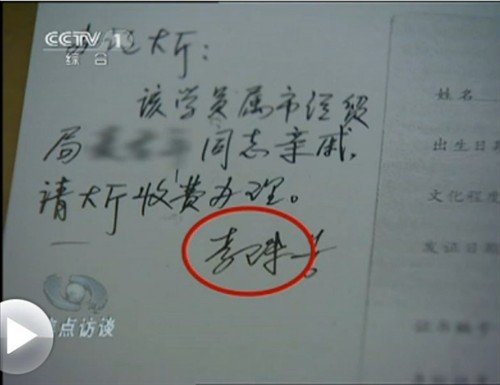 CCTV 1
综合
大厅：
该学员属市经贸
局
同志亲戚，
请大厅收费办理。
李
姓名
出生日
文化程度
发证日期
点访谈